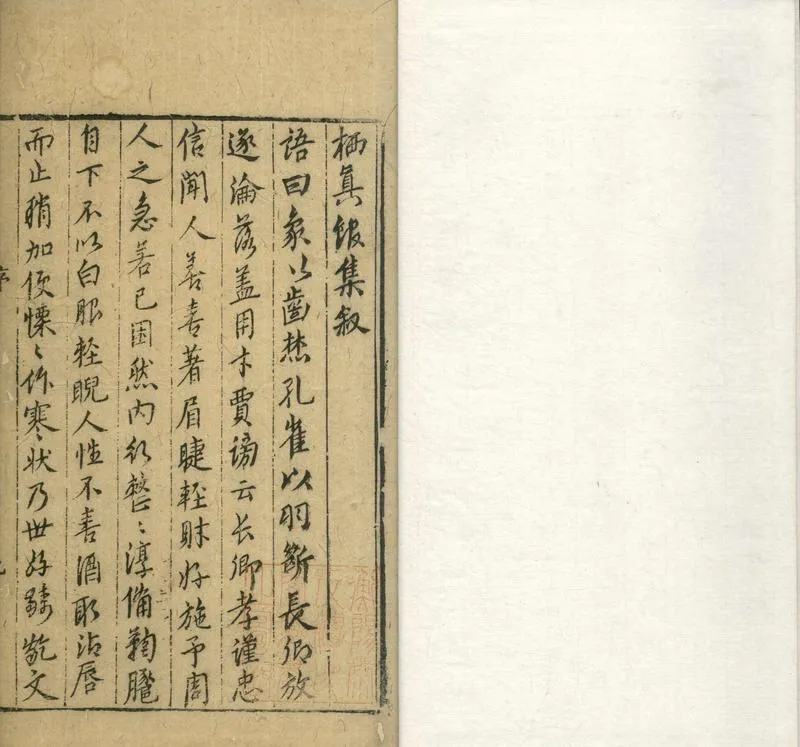 栖真館集叙
語曰象以齒焚孔雀以羽斷長卿放
逐淪落蓋用才賈謗云長卿孝謹忠
信聞人善喜著眉睫輕財好施予周
人之急若己困然内行整〻淳備鞠躬
自下不以白眼輕睨人性不善酒取沾唇
而止稍加便慄〻作寒狀乃世好齮齕文
序